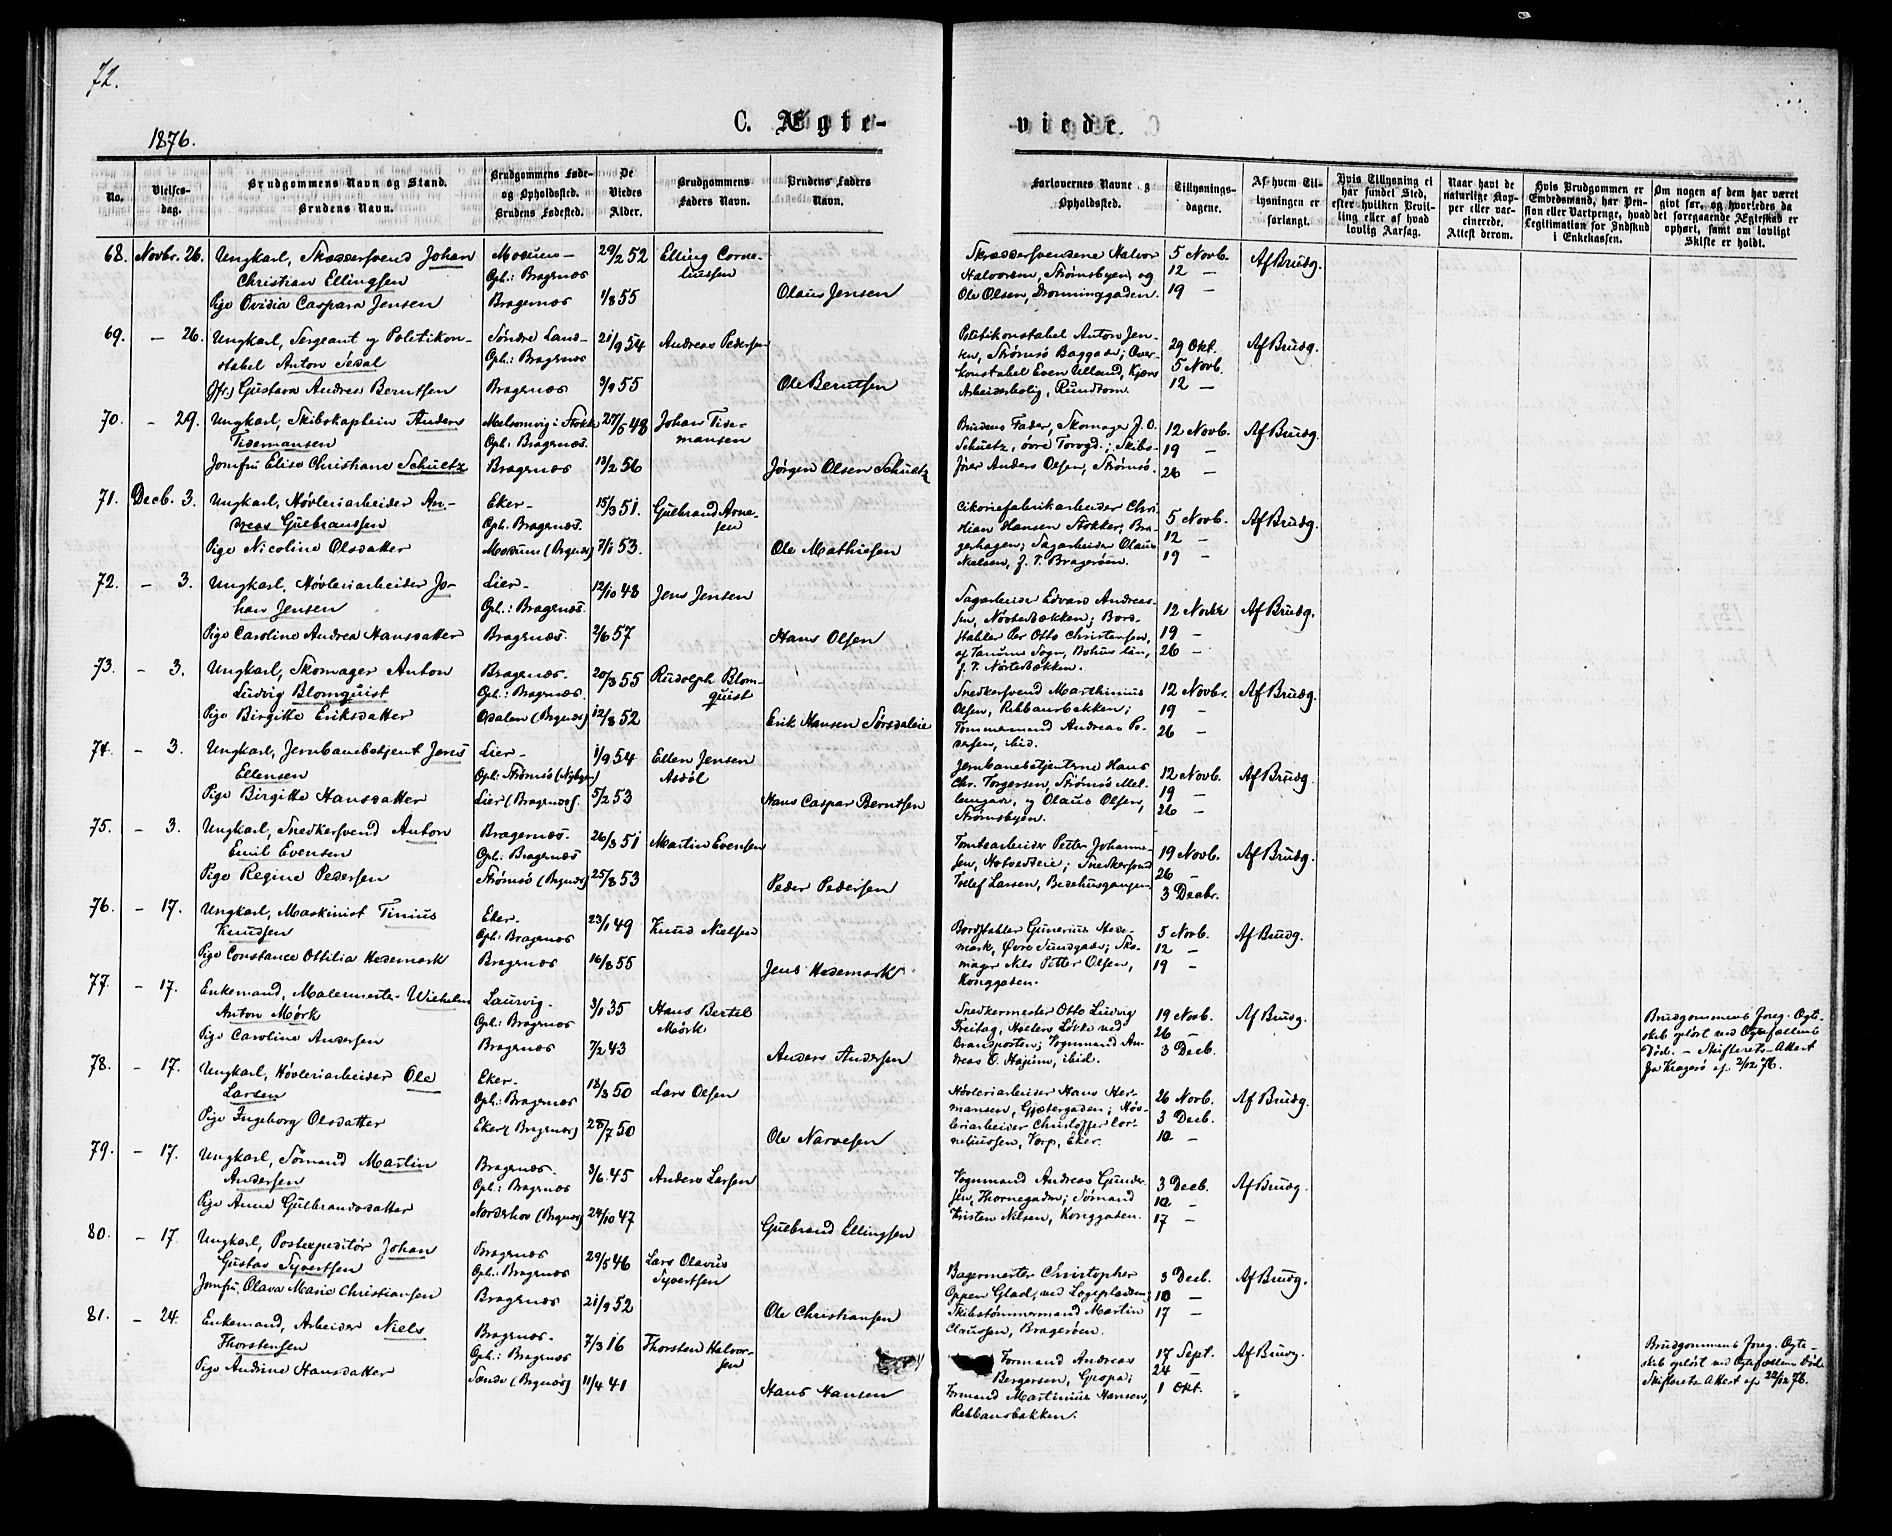 72.
1876.
C. Ægte-
viede.
No.
Vielses-
dag.
Brudgommens Navn og Stand.
Brudens Navn.
Brudgommens Føde-
og Opholdssted.
Brudens Fødested.
De
Viedes
Alder.
Brudgommens
Faders Navn.
Brudens Faders
Navn.
Forlovernes Navne og
Opholdssted.
Tillysnings-
dagene.
Af hvem Til-
lysningen er
forlangt.
Hvis Tillysning ei
har fundet Sted,
efter hvilken Bevil-
ling eller af hvad
lovlig Aarsag.
Naar havt de
naturlige Kop-
per eller vac-
cinerede.
Attest derom.
Hvis Brudgommen er
Embedsmand, har Pen-
sion eller Vartpenge, hvad
Legitimation for Indskud
i Enkekassen.
Om nogen af dem har været
givt før, og hvorledes da
det foregaaende Ægteskab er
ophørt, samt om lovligt
Skifte er holdt.
68. Novbr. 26. Ungkarl, Skrædersvend Johan
Christian Ellingsen
Pige Ovidia Caspara Jensen
Modum-
Oph: Bragernæs
Bragernæs
29/2 52
1/8 55
Elling Corne-
liussen
Olaus Jensen
Skræddersvendene Halvor
Halvorsen, Strømsbyen og
Ole Olsen, Dronninggaden.
5 Novb.
12 —
19 —
Af Brudg.
69. — 26. Ungkarl, Sergeant og Politikon-
stabel Anton Sedal
Jfr. Gustava Andrea Berntsen
Søndre Land-
Oph: Bragernæs
Bragernæs
21/9 54
3/9 55
Andreas Pedersen
Ole Berntsen
Politikonstabel Anton Jen-
sen, Strømsø Baggade; Over-
konstabel Even Ulland, Kjærs
Arbeiderbolig, Rundtom.
29 Okt.
5 Novb.
12 —
Af Brudg.
70. — 29. Ungkarl, Skibskaptein Anders
Tidemansen
Jomfru Elise Christiane Schultz
Melsomvig i Stokke
Oph: Bragernæs.
Bragernæs
27/5 48
13/2 56
Johan Tide-
mansen
Jørgen Olsen Schultz
Brudens Fader, Skomager J. O.
Schultz, øvre Torvgd.; Skibs-
fører Anders Olsen, Strømsø.
12 Novb.
19 —
26 —
Af Brudg.
71. Decb. 3. Ungkarl, Høvleriarbeider An-
dreas Gulbrandsen
Pige Nicoline Olsdatter
Eker-
Oph: Bragernæs.
Modum (Brgnæs)
15/3 51.
7/1 53.
Gulbrand Arne-
sen
Ole Mathiesen
Cikoriefabrikarbeider Chri-
stian Hansen Stokker, Bra-
gerhagen; Sagarbeider Olaus
Nielsen, f. T. Bragerøen.
5 Novb.
12 —
19 —
Af Brudg.
72. — 3. Ungkarl, Høvleriarbeider Jo-
han Jensen
Pige Caroline Andrea Hansdatter
Lier-
Oph: Bragernæs.
Bragernæs.
12/10 48
2/6 57
Jens Jensen
Hans Olsen
Sagarbeider Edvard Andreas-
sen, Nørtebækken; Bord-
stabler Per Otto Christensen,
af Tanums Sogn, Bohus län,
f. T. Nørtebækken.
12 Novbr
19 —
26 —
Af Brudg.
73. — 3. Ungkarl, Skomager Anton
Ludvig Blomquist
Pige Birgitte Eriksdatter
Bragernæs.
Oph: Bragernæs.
Opdalen (Brgnæs)
20/3 55
12/8 52
Rudolph Blom-
quist
Erik Hansen Sørsdaleie
Snedkersvend Marthinius
Olsen, Rebbansbakken;
Tømmermand Andreas Pe-
dersen, ibid.
12 Novbr.
19 —
26 —
Af Brudg.
74. — 3. Ungkarl, Jernbanebetjent Jens
Ellensen
Pige Birgitte Hansdatter
Lier-
Oph: Strømsø (Nybyen)
Lier (Bragernæs).
1/9 54
5/2 53
Ellen Jensen
Asdøl
Hans Caspar Berntsen
Jernbanebetjenterne Hans
Chr. Torgersen, Strømsø Mel-
lemgade, og Olaus Olsen,
Strømsbyen.
12 Novb.
19 —
26 —
Af Brudg.
75. — 3. Ungkarl, Snedkersvend Anton
Emil Evensen
Pige Regine Pedersen
Bragernæs.
Oph: Bragernæs
Strømsø (Brgnæs)
26/3 51
25/8 53
Martin Evensen
Peder Pedersen
Tomtearbeider Petter Johanne-
sen, Hotvedteie; Snedkersvend
Tollef Larsen, Bedehusgangen
19 Novb.
26 —
3 Decbr.
Af Brudg.
76. — 17. Ungkarl, Maskinist Tinius
Knudsen
Pige Constance Ottilia Hedemark
Eker.
Oph: Bragernæs
Bragernæs
23/1 49
16/8 55
Knud Nielsen
Jens Hedemark
Bordstabler Gunerius Hede-
mark, Øvre Sundgade; Sko-
mager Nils Petter Olsen,
Konggaden.
5 Novb.
12 —
19 —
Af Brudg.
77. — 17. Enkemand, Malermester Wilhelm
Anton Mørk
Pige Caroline Andersen
Laurvig-
Oph: Bragernæs
Bragernæs
3/1 35
7/2 43
Hans Bertel
Mørk
Anders Andersen
Snedkermester Otto Ludvig
Freitag, Holters Løkke ved
Brandposten; Vognmand An-
dreas O. Hajum, ibid.
19 Novb.
26 —
3 Decb.
Af Brudg.
Brudgommens foreg. Ægte-
skab opløst ved Ægtefællens
Død. — Skifterets-Attest
fra Kragerø af 2/12 76.
78. — 17. Ungkarl, Høvleriarbeider Ole
Larsen
Pige Ingeborg Olsdatter
Eker.
Oph: Bragernæs
Eker (Bragernæs)
18/3 50
28/7 50
Lars Olsen
Ole Narvesen
Høvleriarbeider Hans Her-
mansen, Gjetergaden; Høv-
leriarbeider Christoffer Cor-
neliussen, Torp, Eker.
26 Novb.
3 Decb.
10 —
Af Brudg.
79. — 17. Ungkarl, Sømand Martin
Andersen
Pige Anne Gulbrandsdatter
Bragernæs.
Oph: Bragernæs
Norderhov (Brgnæs)
3/6 45
24/10 47
Anders Larsen
Gulbrand Ellingsen
Vognmand Andreas Gunder-
sen, Thornegaden; Sømand
Kristen Nilsen, Konggaden.
3 Decb.
10 —
17 —
Af Brudg.
80. — 17 Ungkarl, Postexpeditør Johan
Gustav Syvertsen
Jomfru Olava Marie Christiansen
Bragernæs
Oph: Bragernæs
Bragernæs
29/5 46
21/9 52
Lars Olavus
Syvertsen
Ole Christiansen
Bagermester Christopher
Oppen Glad, ved Logepladsen;
Skibstømmermand Martin
Claussen, Bragerøen.
3 Decb.
10 —
17 —
Af Brudg.
81. — 24. Enkemand, Arbeider Niels
Thorstensen
Pige Andine Hansdatter
Bragernæs-
Oph: Bragernæs
Sande (Brgnæs)
7/3 16
11/4 41
Thorsten Halvor-
sen
Hans Hansen
Formand Andreas
Bergersen, Gropa;
Formand Martinius Hansen,
Rebbansbakken.
17 Sept.
24 —
1 Okt.
Af Brudg.
Brudgommens foreg. Ægte-
skab opløst ved Ægtefællens Død.
Skifterets-Attest af 22/12 76.